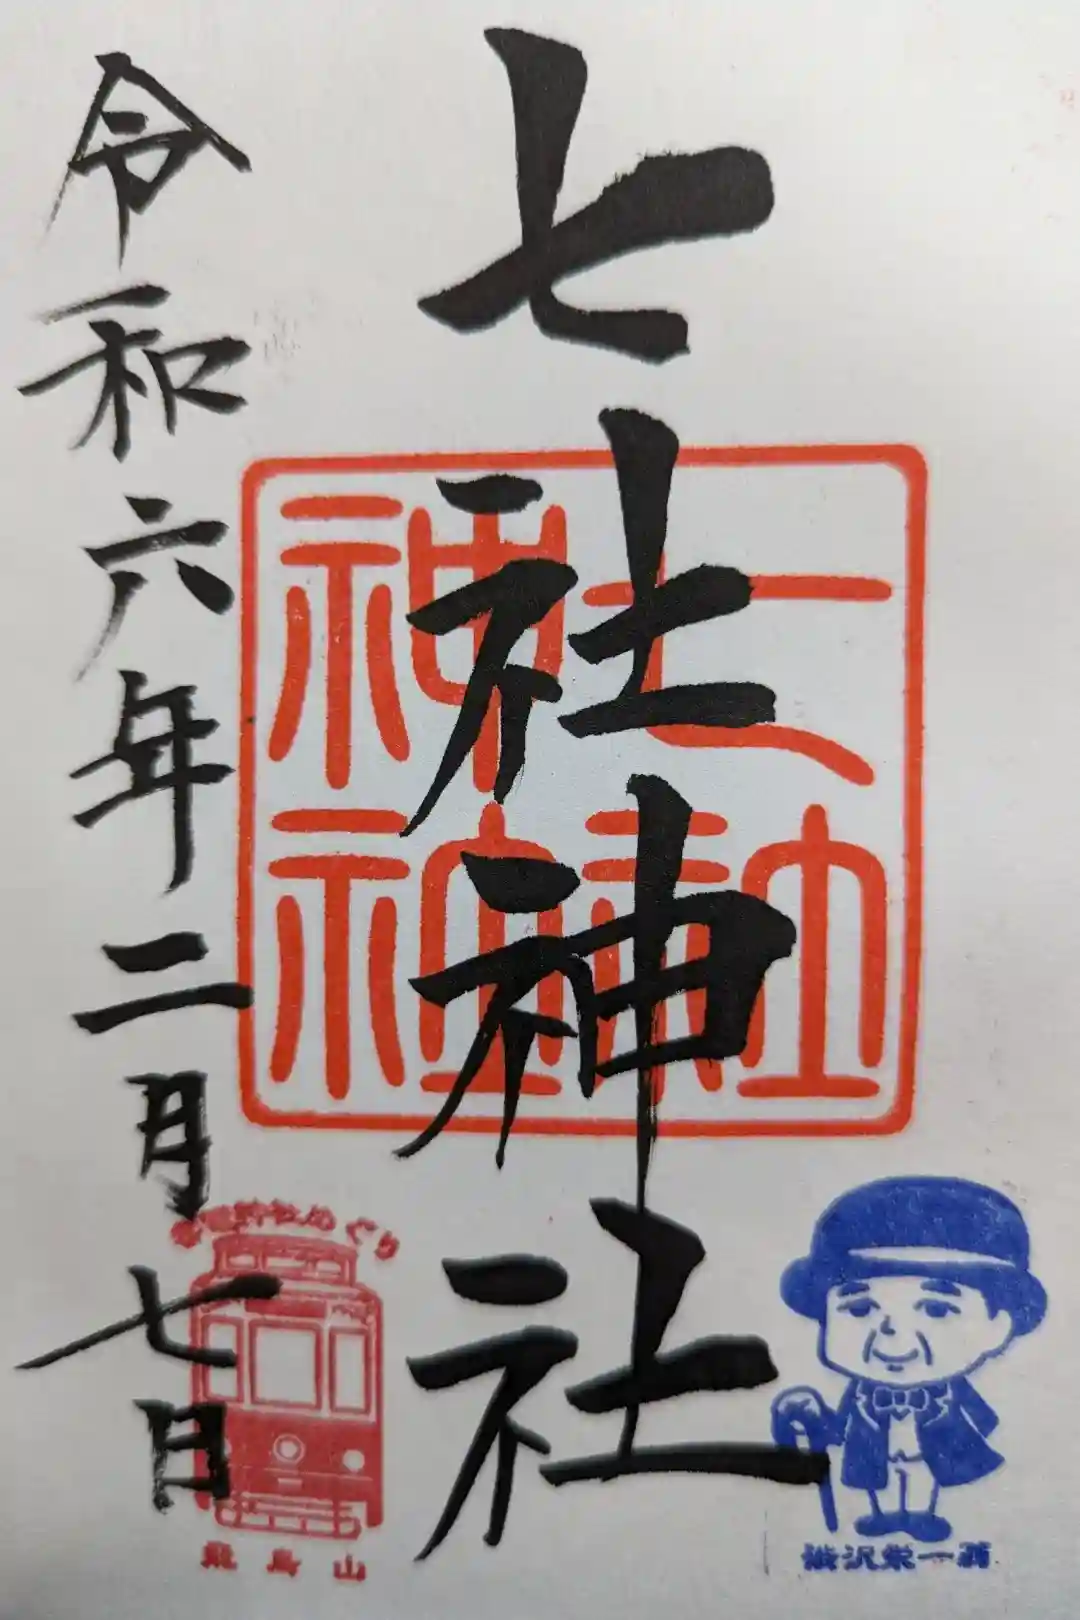 七社神社
七社
神社
令和六年二月七日
神社めぐり
飛鳥山
渋沢栄一翁